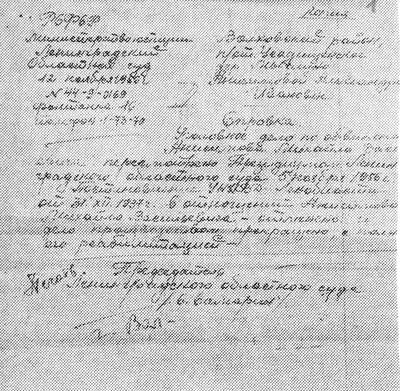 Копия
РСФСР
Министерство юстиции
Ленинградский
Областной суд
12 ноября 1956 г.
N 44-У-2169
Фонтанка 16
телефон 1-73-79
Волховский район,
Анисимовой Александре
Ивановне
Справка
Уголовное дело по обвинению
Анисимова Михаила
пересмотрено Президиумом Ленин
градского областного суда 5 ноября 1956 г.
Постановление УНКВД Ленобласти
от 31 XII 1937 г. в отношении Анисимова
Михаила Васильевича - отменено и
дело производством прекращено, с полн
его реабилитацией -
Председатель
Ленинградского областного суда
Печать